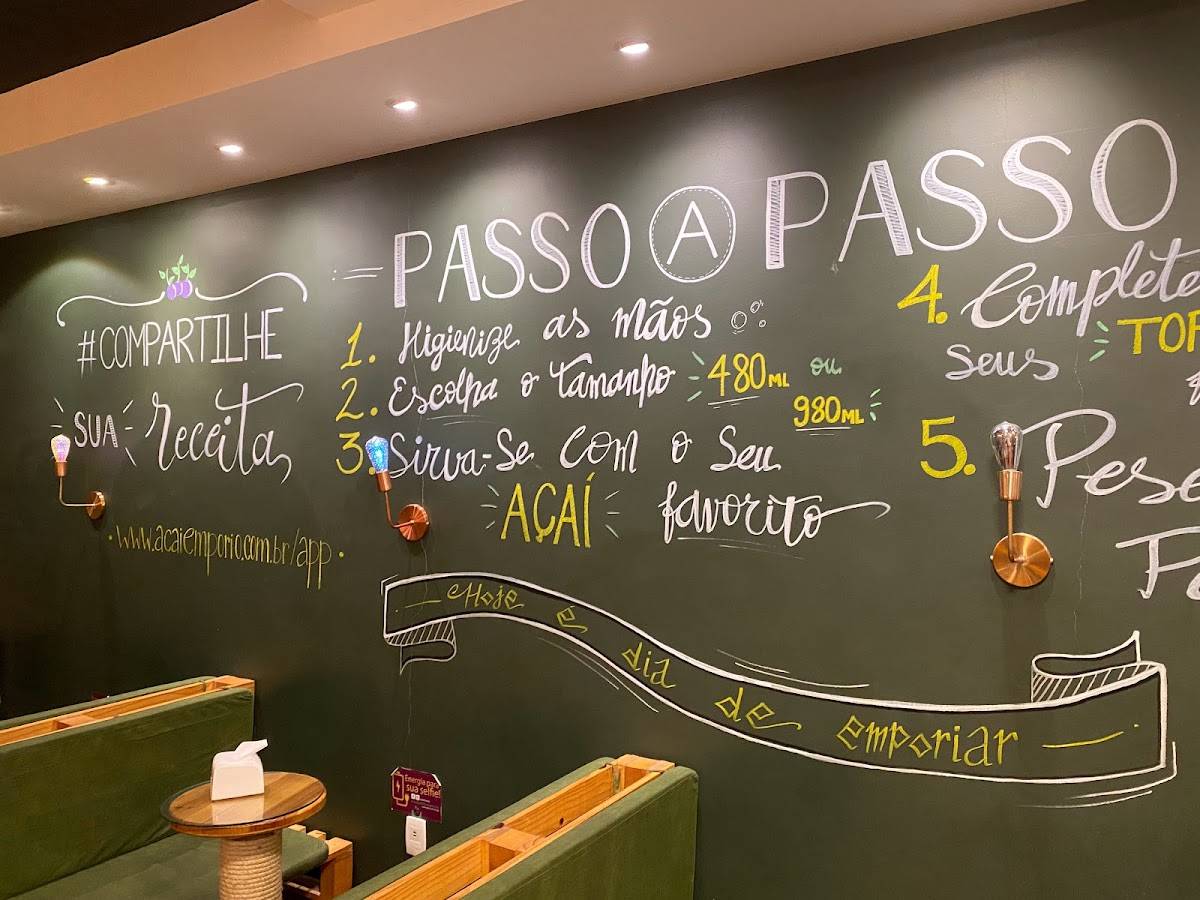 #COMPARTILHE
SUA receita
www.acaiemporio.com.br/app
PASSO A PASSO
1. Higienize as mãos
2. Escolha o tamanho 480ML ou
980ML
3. Sirva-se com o seu
AÇAÍ favorito
4. Complete
seus TOP
5. Pese
Hoje é dia de emporiar
Energia para
sua selfie!